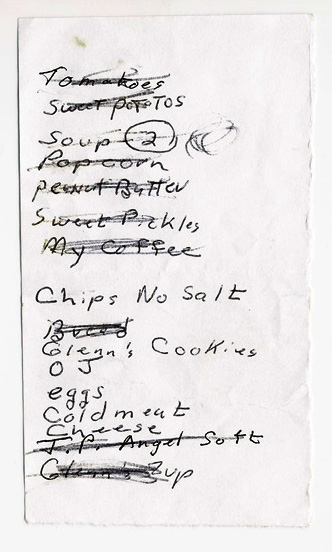 Tomatoes
Sweet PoTaTOS
Soup 2
Popcorn
peanut Butter
Sweet Pickles
My Coffee
Chips No Salt
Bread
Glenn's Cookies
O J
eggs
Cold meat
Cheese
T.P. Angel Soft
Glenn's 7up